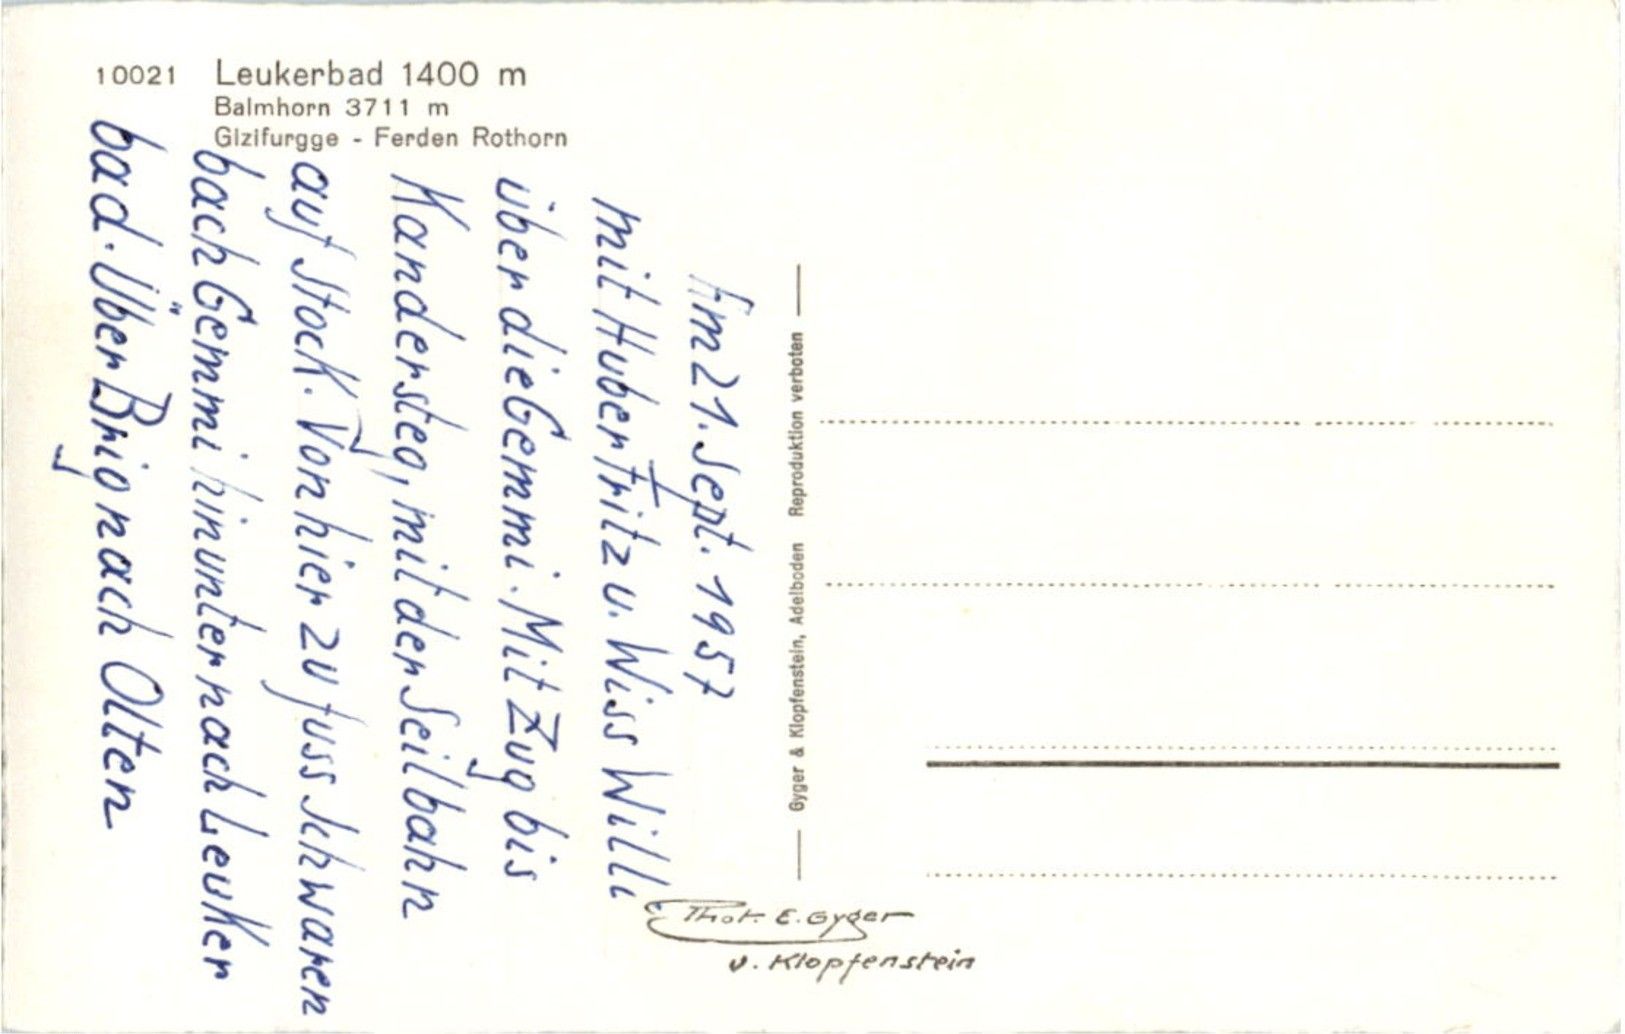 10021 Leukerbad 1400 m
Balmhorn 3711 m
Gizifurgge - Ferden Rothorn
Am 21. Sept. 1957
mit Huber Fritz u. Wiss Willi
über die Gemmi. Mit Zug bis
Kandersteg, mit der Seilbahn
auf Stock. Von hier zu fuss Schwaren
bach Gemmi hinunter nach Leuker
bad. Über Brig nach Olten
Gyger & Klopfenstein, Adelboden Reproduktion verboten
Phot. E. Gyger
u. Klopfenstein